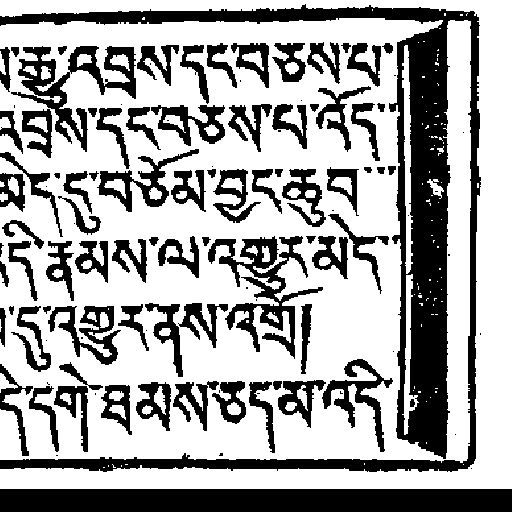 རྒྱུ་འབྲས་དང་བཅས་པ་
འབྲས་དང་བཅས་པ་འོད་
མེད་དུ་བཙོམ་བྱང་ཆུབ་
འདི་རྣམས་ལ་འགྱུར་མེད་
དུ་འགྱུར་ནས་འགྲོ།
དེ་དགེ་ཐམས་ཅད་མ་འདི་